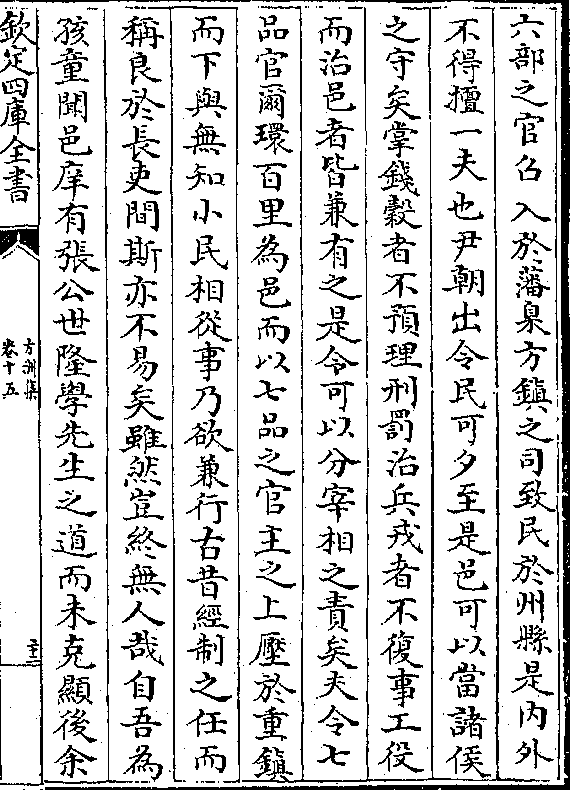 六部之官佔入於藩臬方鎮之司致民於州縣是内外
不得擅一夫也尹朝出令民可夕至是邑可以當諸侯
之守矣掌錢穀者不預理刑罰治兵戎者不復事工役
而治邑者皆兼有之是令可以分宰相之責矣夫令七
品官爾環百里為邑而以七品之官主之上壓於重鎮
而下與無知小民相從事乃欲兼行古昔經制之任而
稱良於長吏間斯亦不易矣雖然豈終無人哉自吾為
孩童聞邑庠有張公世隆學先生之道而未克顯後余
欽定四庫全書
方洲集
卷十五